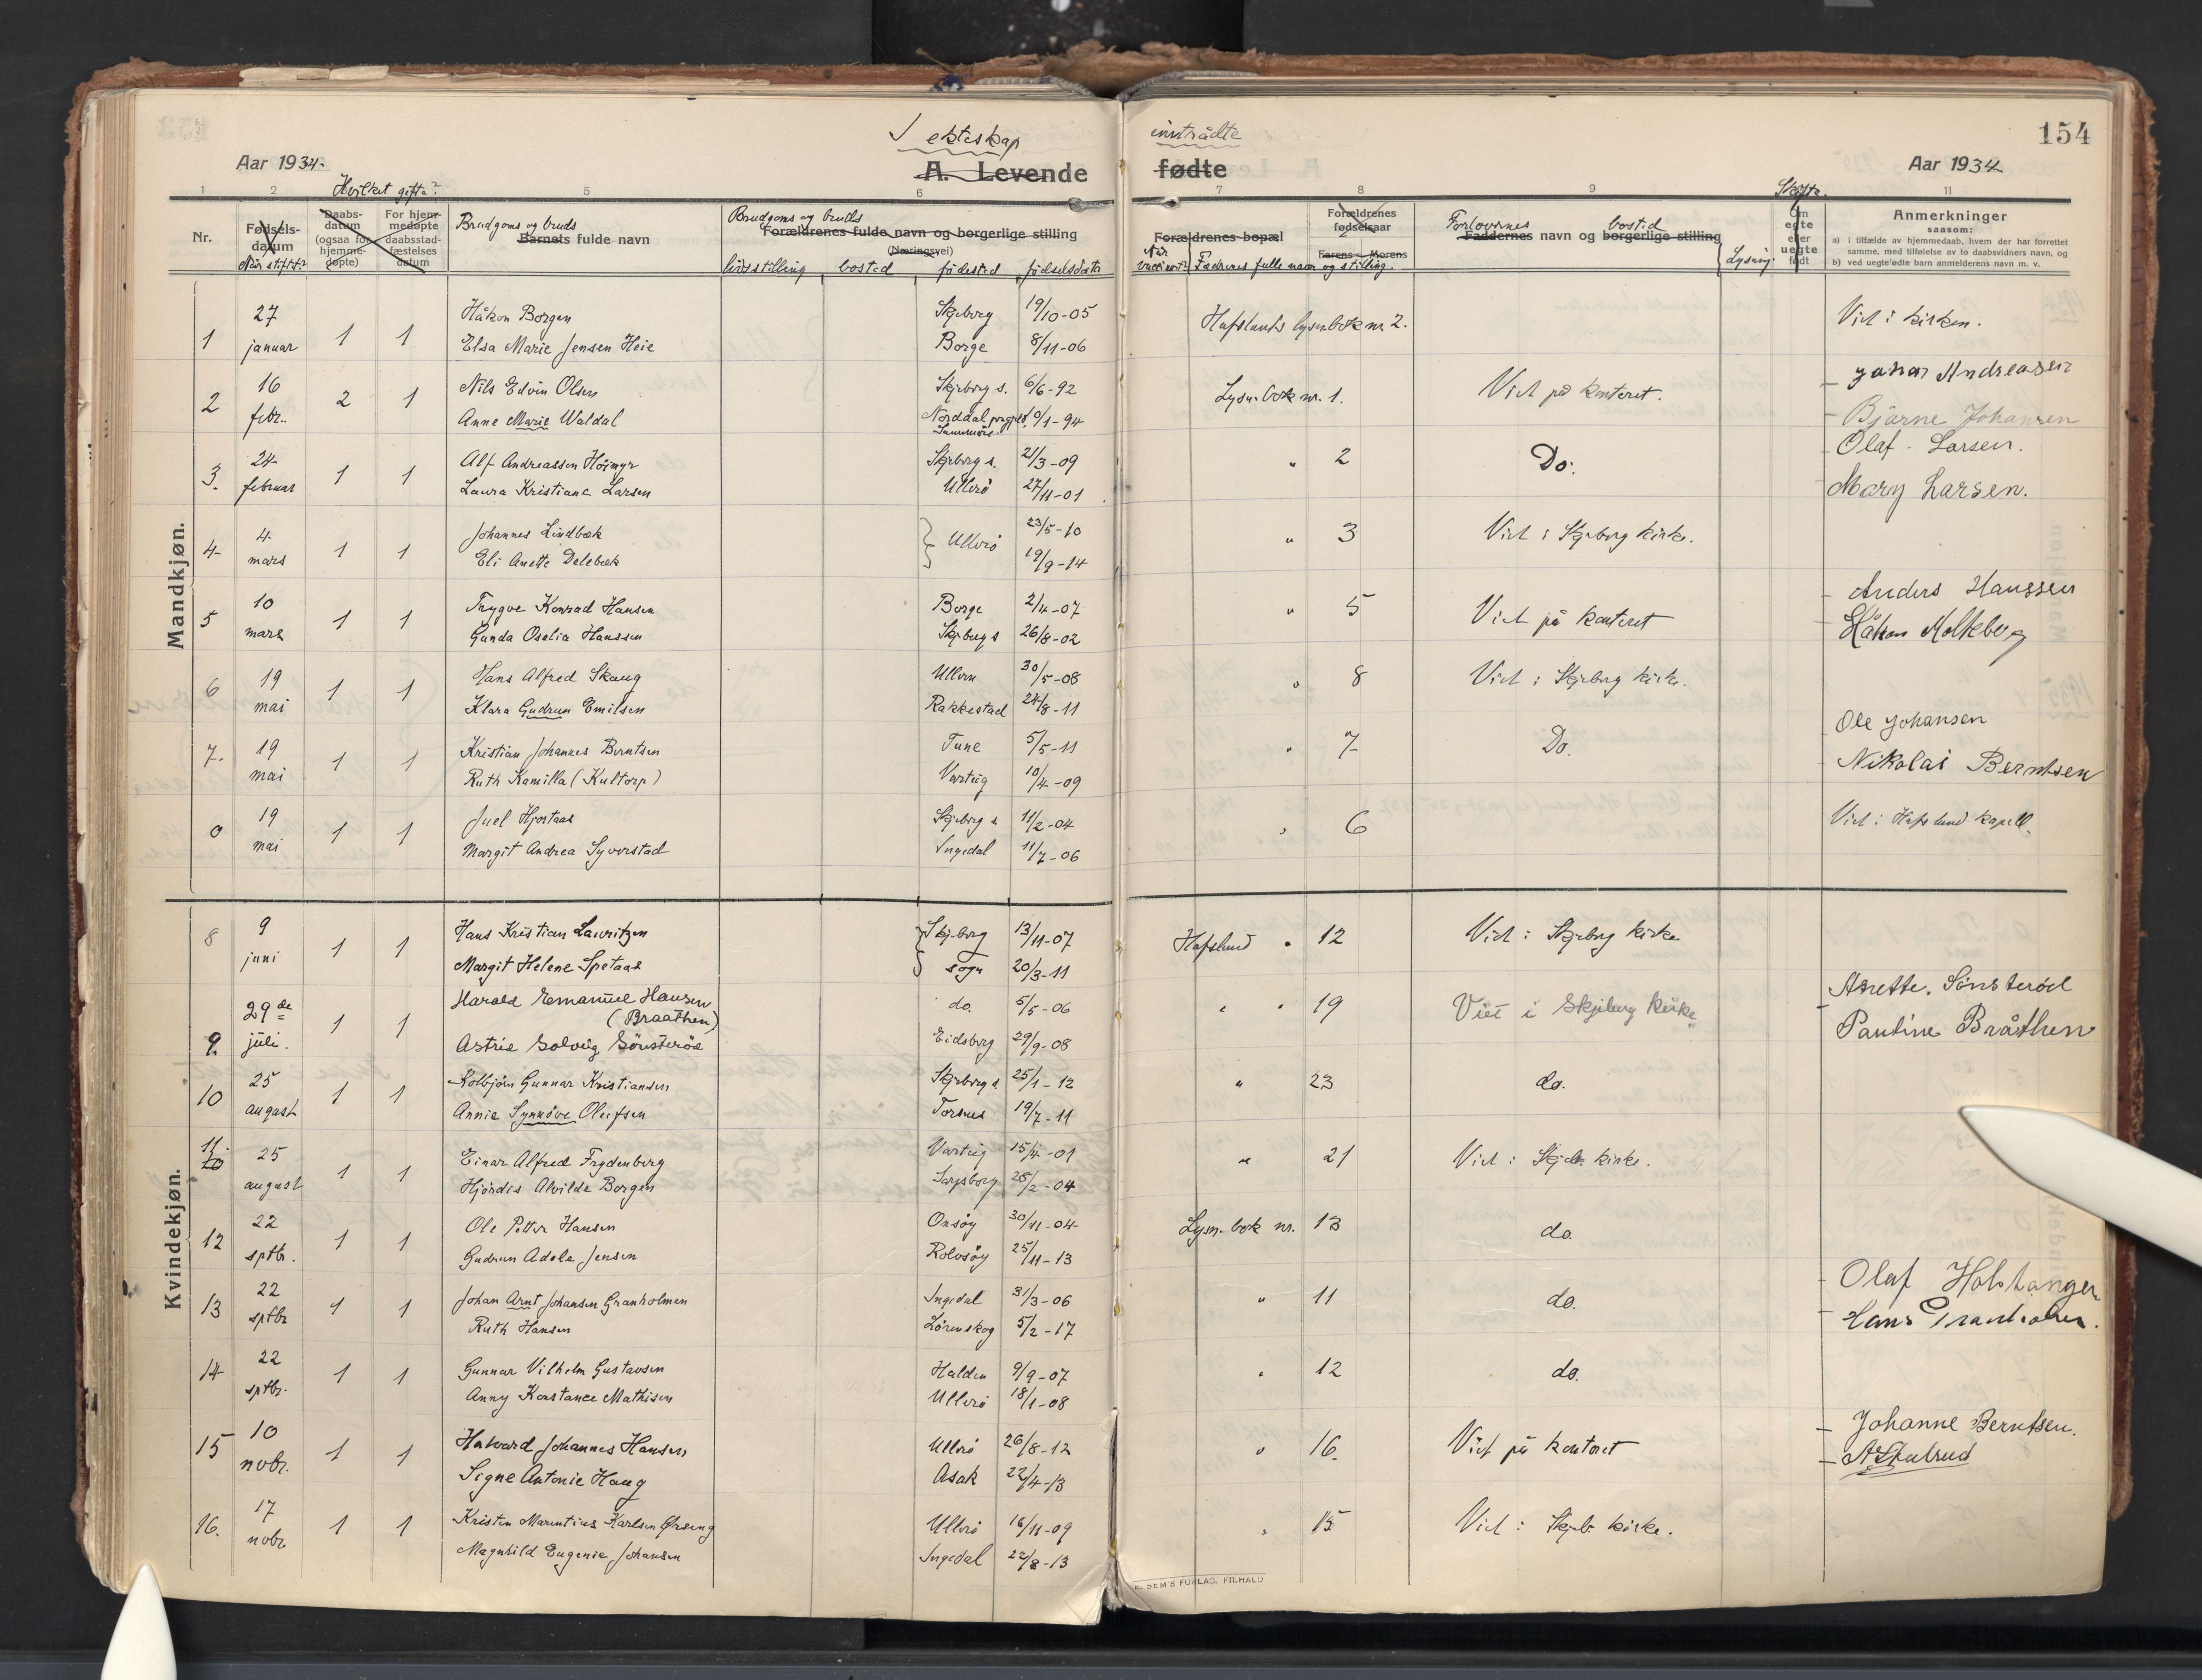 I ekteskap inntrådte
154
Aar 1934.
A. Levende fødte
Aar 1934
Hvilket gifte?
Skifte.
1 2 5 6 7 8 9 11
Nr.
Fødsels-datum
Når stiftt?
Daabs-datum (ogsaa for hjemme-døpte)
For hjem-medøpte daabsstad-fæstelses datum
Brudgoms og bruds
Barnets fulde navn
Brudgoms og bruds
Forældrenes fulde navn og borgerlige stilling
(Næringsvei)
livsstilling bosted fødested fødselsdato
Forældrenes bopæl
Når vaccinert?
Fædrenes fulle navn og stilling.
Forældrenes fødselsaar
Farens Morens
Forlovernes bosted
Faddernes navn og borgerlige stilling
Lysning.
Om egte eller uegte født
Anmerkninger
saasom:
a) i tilfælde av hjemmedaab, hvem der har forrettet
samme, med tilføielse av to daabsvidners navn, og
b) ved uegtefødte barn anmelderens navn m. v.
Mandkjøn.
1 27 januar 1 1 Håkon Borgen Skjeberg 19/10-05 Hafslunds lysn.bok nr 2. Viet i kirken.
Elsa Marie Jensen Heie Borge 8/11-06
2 16 febr. 2 1 Nils Edvin Olsen Skjeberg s. 6/6-92 Lysn.bok nr. 1. Viet på kontoret. Andreasen
Anne Marie Waldal Norddal prgjld. Sunnmøre. /1-94 Bjarne Johansen
3. 24 februar 1 1 Alf Andreassen Höimyr Skjeberg s. 21/3-09 " 2 Do. Olaf Larsen.
Laura Kristiane Larsen Ullerö 27/11-01 Mary Larsen.
4 4 mars 1 1 Johannes Lindbæk Ullerö 23/5-10 " 3 Viet i Skjeberg kirke.
Eli Anette Delebæk 19/9-14
5 10 mars 1 1 Trygve Konrad Hansen Borge 2/4-07 " 5 Viet på kontoret Anders Hanssen
Gunda Oselia Hanssen Skjeberg s 26/8-02 Håkon Moltkeberg
6 19 mai 1 1 Hans Alfred Skaug Ullern 30/5-08 " 8 Viet i Skjeberg kirke.
Klara Gudrun Emilsen Rakkestad 24/8-11
7 19 mai 1 1 Kristian Johannes Berntsen Tune 5/5-11 " 7 Do. Ole Johansen
Ruth Kamilla (Kultorp) Varteig 10/4-09 Nikolai Berntsen
0 19 mai 1 1 Juel Hjortaas Skjeberg s 11/2-04 " 6 Viet i Hafslund kapell.
Margit Andrea Syverstad Ingedal 11/7-06
Kvindekjøn.
8 9 juni 1 1 Hans Kristian Lauritzen Skjeberg sogn 13/11-07 Hafslund " 12 Viet i Skjeberg kirke
Margit Helene Spetaas 20/3-11
9. 29de juli. 1 1 Harald Emanuel Hansen (Braathen) do. 5/5-06 " " 19 Viet i Skjeberg kirke Anette. Sönsteröd
Astrid Solveig Sönsteröd Eidsberg 29/9-08 Pauline Bråthen
10 25 august 1 1 Kolbjörn Gunnar Kristiansen Skjeberg s. 25/1-12 " 23 do.
Annie Synnöve Olufsen Torsnes 19/7-11
11 10 25 august 1 1 Einar Alfred Frydenberg Varteig 15/4-01 " 21 Viet i Skjeb. kirke.
Hjördis Alvilde Borgen Sarpsborg 28/2-04
12 22 sptbr. 1 1 Ole Petter Hansen Onsöy 30/11-04 Lysn. bok nr. 13 do.
Gudrun Adele Jensen Rolvsöy 25/11-13
13 22 sptbr 1 1 Johan Arnt Johansen Granholmen Ingedal 31/3-06 " 11 do. Olaf Holstanger
Ruth Hansen Lörenskog 5/2-17 Hans Granholmen.
14 22 sptbr. 1 1 Gunnar Vilhelm Gustavsen Halden 9/9-07 " 12 do.
Anny Konstance Mathisen Ullerö 18/1-08
15 10 nobr. 1 1 Halvard Johannes Hansen Ullerö 26/8-12 " 16. Viet på kontoret Johanne Berntsen.
Signe Antonie Haug Asak 22/4-13
16. 17 nobr. 1 1 Kristen Marentius Karlsen Ørseng Ullerö 16/11-09 " 15 Viet i Skjeb. kirke.
Magnhild Eugenie Johansen Ingedal 22/8-13
E. SEM'S FORLAG. FR.HALD